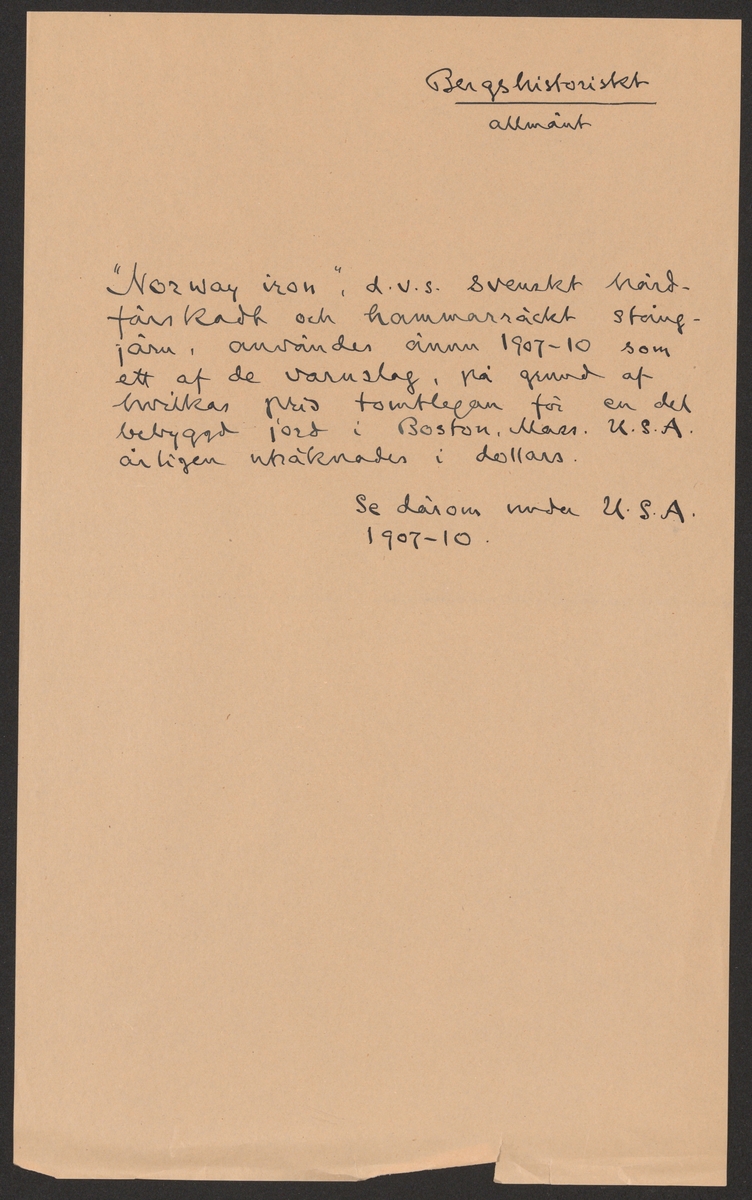 Bergshistoriskt
allmänt
"Norway iron", d.v.s. svenskt härd-
färskadt och hammarräckt stång-
järn, användes ännu 1907-10 som
ett af de varuslag, på grund af
hvilkas pris tomtlegan för en del
bebyggd jord i Boston, Mass. U.S.A.
årligen uträknades i dollars.
Se därom under U.S.A.
1907-10.